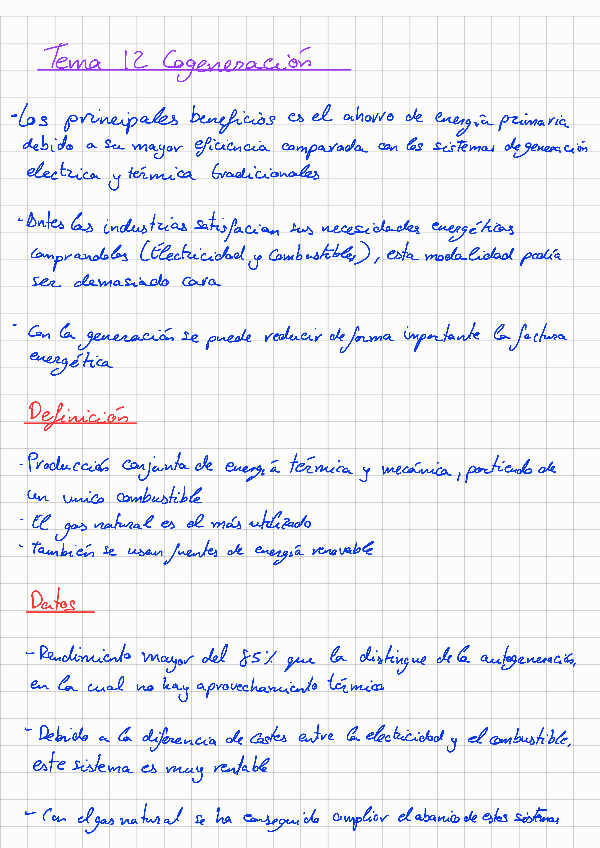 Tema 12 Cogeneración
-Los principales beneficios es el ahorro de energía primaria
debido a su mayor eficiencia comparada con los sistemas de generación
electrica y térmica tradicionales
-Antes las industrias satisfacian sus necesidades energéticas
comprandolas (Electricidad y Combustibles), esta modalidad podía
ser demasiado cara
- Con la generación se puede reducir de forma importante la factura
energética
Definición
-Producción conjunta de energía térmica y mecánica, partiendo de
un unico combustible
- El gas natural es el más utilizado
- También se usan fuentes de energía renovable
Datos
- Rendimiento mayor del 85% que la distingue de la autogeneración,
en la cual no hay aprovechamiento térmico
- Debido a la diferencia de costes entre la electricidad y el combustible,
este sistema es muy rentable
- Con el gas natural se ha conseguido ampliar el abanico de estos sistemas